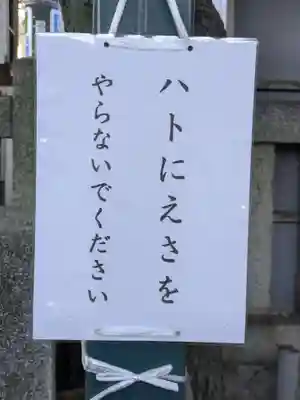 ハトにえさを
やらないでください